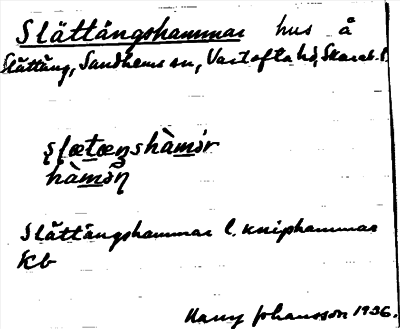 Slättängshammar hus å
Slättäng, Sandhems sn, Vartofta hd, Skarab. l.
şlætæŋshàmər
hàmən
Slättängshammar l. kniphammar
Kb
Harry Johansson 1936.